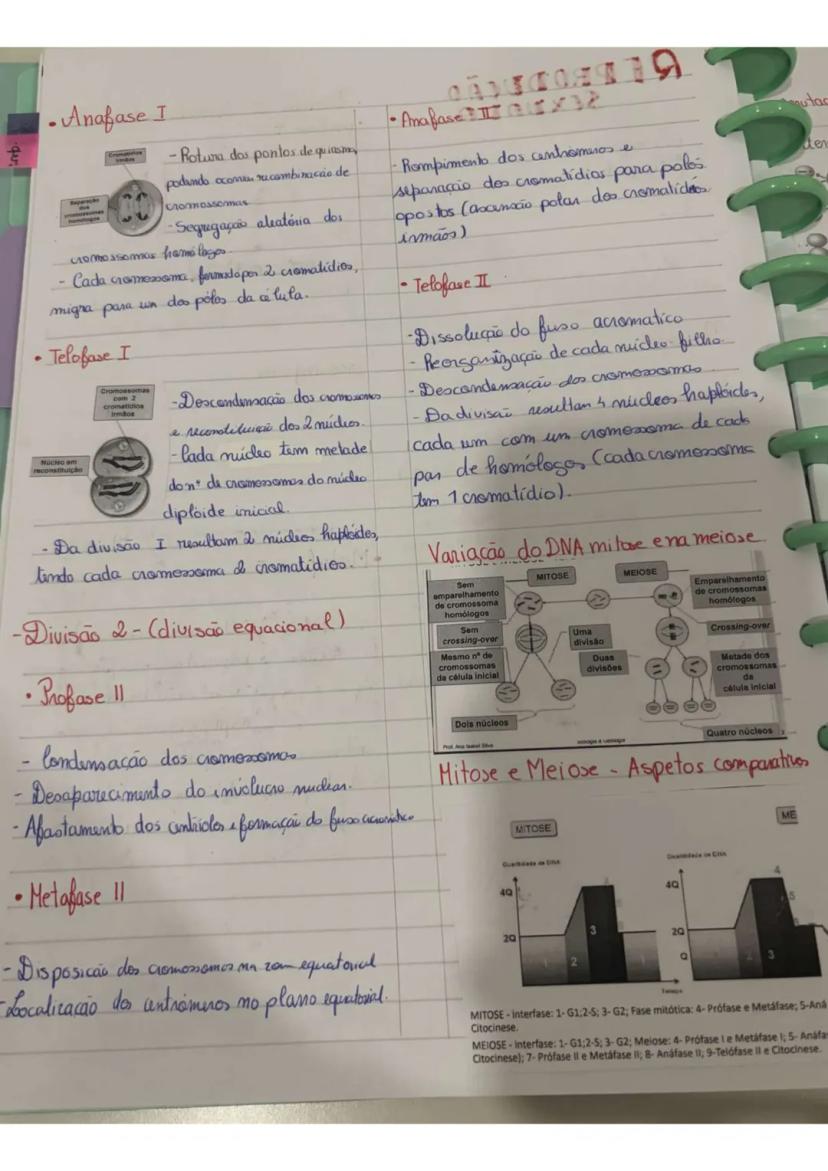 • Anafase I
Cromatídios
irmãos
Separação
dos
cromossomas
homólogos
- Rotura dos pontos de quiasma,
podendo ocorrer recombinação de
cromossomas
- Segregação aleatória dos
cromossomas homólogos
- Cada cromossoma, formado por 2 cromatídios,
migra para um dos pólos da célula.
• Telofase I
Cromossomas
com 2
cromatídios
irmãos
Núcleo em
reconstituição
- Descondensação dos cromossomas
e reconstituição dos 2 núcleos.
- Cada núcleo tem metade
do nº de cromossomas do núcleo
diplóide inicial.
- Da divisão I resultam 2 núcleos haplóides,
tendo cada cromossoma 2 cromatídios.
- Divisão 2 - (divisão equacional)
• Profase II
- Condensação dos cromossomas
- Desaparecimento do invólucro nuclear.
- Afastamento dos centríolos e formação do fuso acromático
• Metafase II
- Disposição dos cromossomas na zona equatorial
- Localização dos centrómeros no plano equatorial.
REPRODUÇÃO
SEXUADA
• Anafase II
- Rompimento dos centrómeros e
separação dos cromatídios para polos
opostos (ascensão polar dos cromatídios
irmãos)
• Telofase II
- Dissolução do fuso acromatico
- Reorganização de cada núcleo filho
- Descondensação dos cromossomas
- Da divisão resultam 4 núcleos haplóides,
cada um com um cromossoma de cada
par de homólogos (cada cromossoma
tem 1 cromatídio).
Variação do DNA mitose e na meiose
MITOSE
MEIOSE
Sem
emparelhamento
de cromossoma
homólogos
Emparelhamento
de cromossomas
homólogos
Sem
crossing-over
Crossing-over
Uma
divisão
Mesmo nº de
cromossomas
da célula inicial
Duas
divisões
Metade dos
cromossomas
da
célula inicial
Dois núcleos
Quatro núcleos
Prof. Ana Isabel Silva
Biologia e Geologia
Mitose e Meiose - Aspetos comparativos
MITOSE
ME
Quantidade de DNA
Quantidade de DNA
4Q
2Q
1
2
3
4Q
2Q
Q
3
4
5
Tempo
MITOSE - Interfase: 1- G1;2-S; 3- G2; Fase mitótica: 4- Prófase e Metáfase; 5-Aná
Citocinese.
MEIOSE - Interfase: 1- G1;2-S; 3- G2; Meiose: 4- Prófase I e Metáfase I; 5- Anáfa
Citocinese); 7- Prófase II e Metáfase II; 8- Anáfase II; 9-Telófase II e Citocinese.